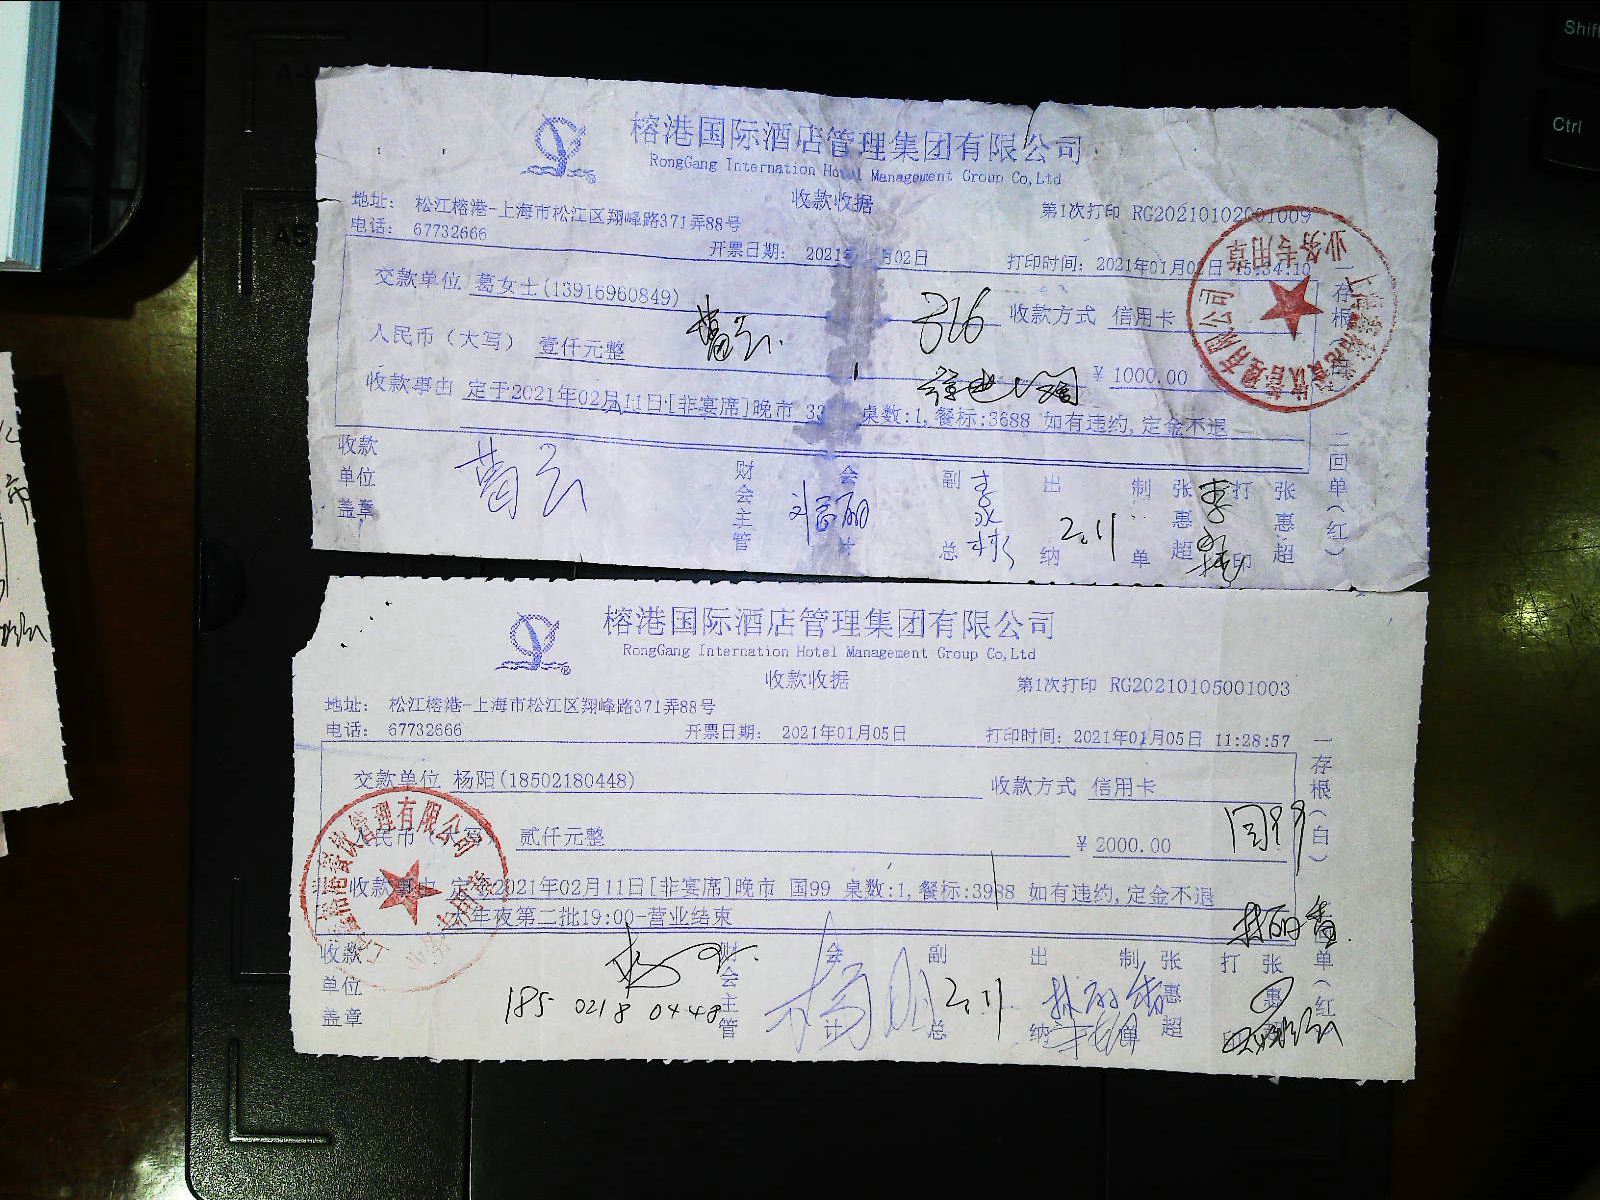 榕港国际酒店管理集团有限公司
RongGang International Hotel Management Group Co,Ltd
收款收据
地址: 松江榕港-上海市松江区翔峰路371弄88号
第1次打印 RG20210102001009
电话: 67732666
开票日期: 2021年 月02日
打印时间: 2021年01月02日 15:34:10
交款单位 葛女士(13916960849)
316
收款方式 信用卡
人民币(大写) 壹仟元整
¥ 1000.00
收款事由 定于2021年02月11日[非宴席]晚市 33 桌数:1,餐标:3688 如有违约,定金不退
收款单位盖章
财会主管
会计
副总
李永彬
出纳
2.11
制单
张惠超
打印
张惠超
一存根
二回单(红)
业务专用章
榕港国际酒店管理集团有限公司
RongGang International Hotel Management Group Co,Ltd
收款收据
第1次打印 RG20210105001003
地址: 松江榕港-上海市松江区翔峰路371弄88号
电话: 67732666
开票日期: 2021年01月05日
打印时间: 2021年01月05日 11:28:57
交款单位 杨阳(18502180448)
收款方式 信用卡
人民币(大写) 贰仟元整
¥ 2000.00
国99
收款事由 定于2021年02月11日[非宴席]晚市 国99 桌数:1,餐标:3988 如有违约,定金不退
大年夜第二批19:00-营业结束
收款单位盖章
185 0218 0448
财会主管
会计
副总
2.11
出纳
制单
张惠超
打印
张惠
一存根(白)
单(红)
餐饮管理有限公司
Shift
Ctrl